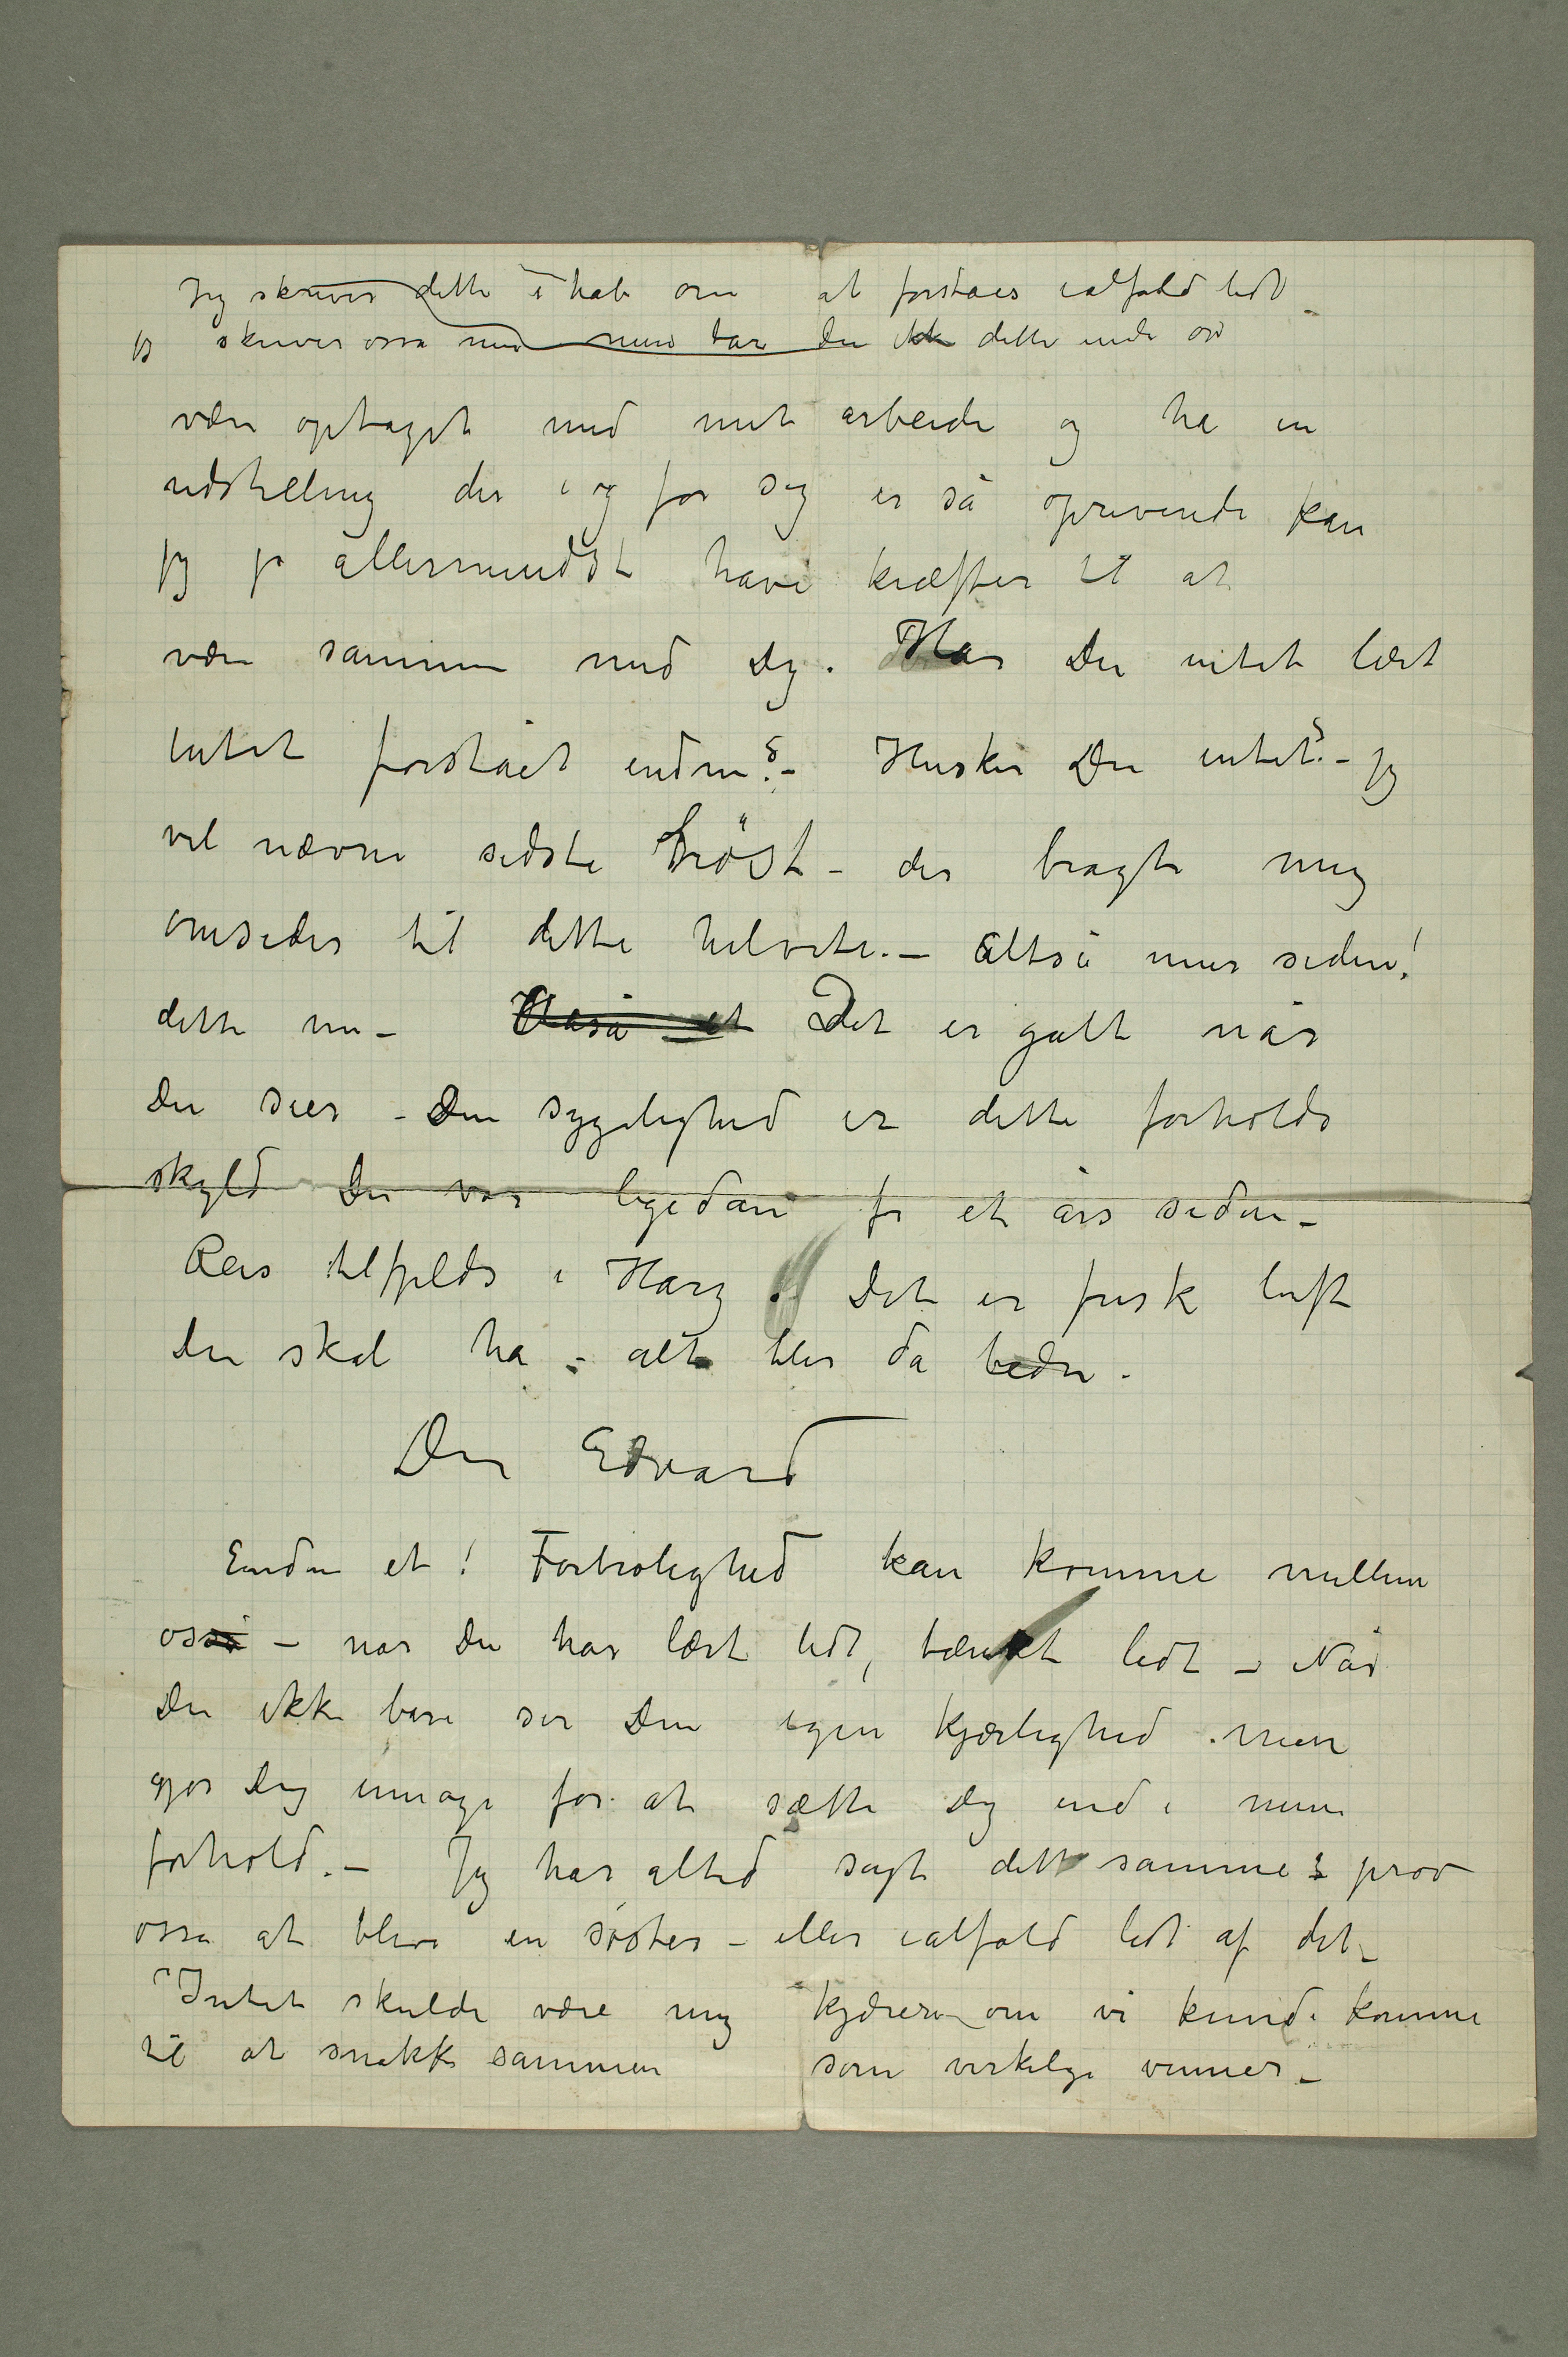 Jeg skriver dette i håb om at forståes ialfald lidt
jeg skriver osså men men tar Du ikke dette
være optaget med mit arbeide og ha en
udstilling der i og for sig er så oprivende kan
jeg jo allermindst have kræfter til at
være sammen med Dig. Har Du intet lært
intet forstået endnu? – Husker Du intet? – Jeg
vil nævne sidste høst – der bragte mig
omsider til dette helvete. – altså mer siden!
dette nu – Det er galt når
Du sier – Din sygelighed er dette forholds
skyld Du var ligedan for et års siden –
Reis tilfjelds i Harz. Det er frisk luft
Du skal ha – alt blir da bedre.
Din Edvard
Endnu et! Fortrolighed kan komme mellem
os – når Du har lært lidt, tænkt lidt – Når
Du ikke bare ser Din egen kjærlighed men
gjør Dig umage for at sætte Dig ind i mine
forhold. – Jeg har altid sagt dette samme: prøv
osså at blive en søster – eller ialfald lidt af det –
Intet skulde være mig kjærere – om vi kunde komme
til at snakke sammen som virkelige venner –